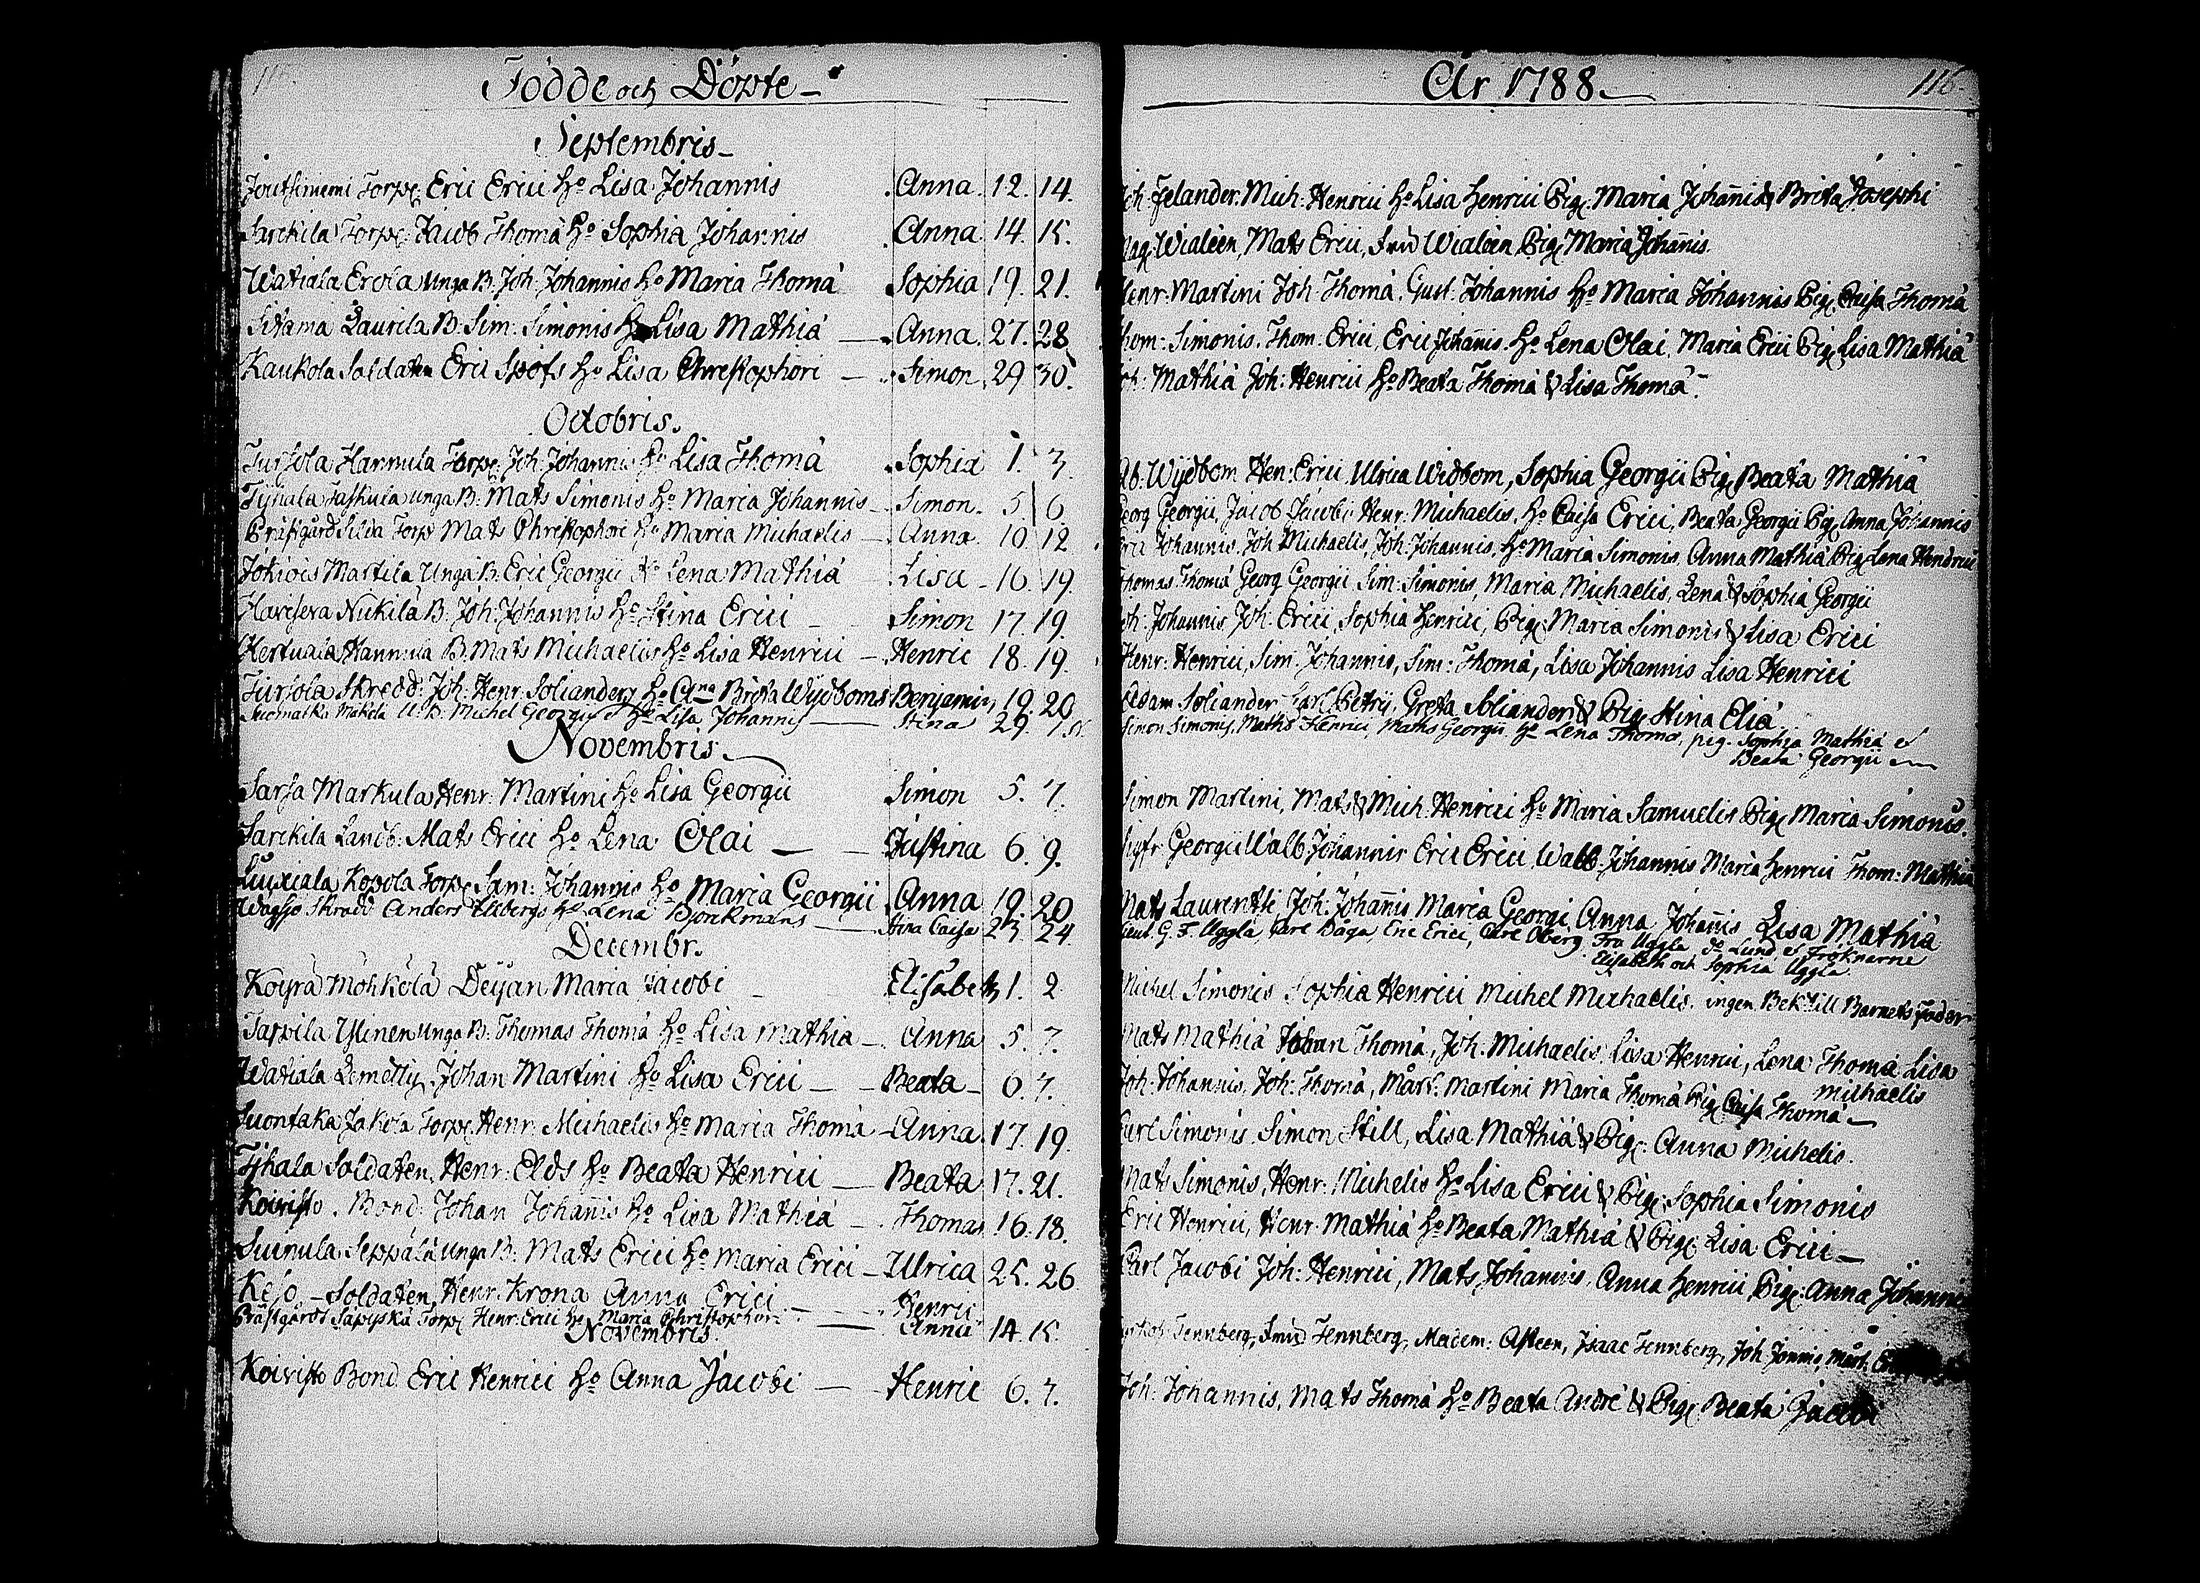 Födde och Döpte
Septembris
Torp. Eric Erici H:o Lisa Johannis Anna 12. 14.
Sarckila Torp. Jacob Thomä H:o Sophia Johannis Anna 14. 15.
Watiala Erola unga B. Joh: Johannis H:o Maria Thomä Sophia 19. 21.
Sitama Laurila B. Sim: Simonis H:o Lisa Mathiä Anna 27. 28
Kaukola Soldaten Eric Spofs H:o Lisa Christophori Simon 29 30.
Octobris.
Tursola Hannula Torp. Joh: Johannis H:o Lisa Thomä Sophia 1. 3.
Taskula unga B. Mats Simonis H:o Maria Johannis Simon. 5 6
Prästgård Torp. Mats Christophori H:o Maria Michaelis Anna 10 12
Jokiois Martila Unga B. Eric Georgii H:o Lena Mathiä Lisa 16. 19.
Nuckila B. Joh: Johannis H:o Stina Erici Simon 17. 19.
Kertuala Hannula B. Mats Michaelis H:o Lisa Henrici Henric 18. 19.
Tursola Skredd: Joh: Henr: Soliander H:o Brita Wydboms Benjamin 19. 20
Makela U: B: Michel Georgii H:o Lisa Johannis Stina 29.
Novembris
Sarsa Markula Henr: Martini H:o Lisa Georgii Simon 5. 7.
Sarckila Landb: Mats Erici H:o Lena Olai Justina 6. 9.
Kopola Torp. Sam: Johannis H:o Maria Georgii Anna 19 20
Skrädd Anders H:o Lena Björkmans Stina Caisa 23. 24.
Decembr.
Koyrä Möhkölä Deijan Maria Jacobi Elisabeth 1. 2
Tarpila Ylinen unga B. Thomas Thomä H:o Lisa Mathiä Anna 5. 7.
Watiala Lemetty Johan Martini H:o Lisa Erici Beata 6. 7.
Suontaka Jakola Torp. Henr: Michaelis H:o Maria Thomä Anna 17. 19.
Tyhala Soldaten, Henr: Elds H:o Beata Henrici Beata 17. 21.
Koivisto Bond. Johan Johannis H:o Lisa Mathiä Thomas 16. 18.
Suinula Seppälä unga B. Mats Erici H:o Maria Erici Ulrica 25. 26
Kejo Soldaten, Henr: Krona Anna Erici Henric
Prästgård Torp. Henr: Erici H:o Maria Christophori Anna 14. 15.
Novembris.
Koivisto Bond Eric Henrici H:o Anna Jacobi Henric 6. 7.
År 1788.
116.
Felander. Mich: Henrici H:o Lisa Henrici Pig. Maria Johannis & Brita Josephi
Wialeen, Mats Erici, Fru Wialeen Pig. Maria Johannis.
Henr: Martini Joh: Thomä, Gust. Johannis H:o Maria Johannis Pig. Caisa Thomä
Thom: Simonis, Thom: Erici, Eric Johannis H:o Lena Olai, Maria Erici Pig. Lisa Mathiä
Joh: Mathiä Joh: Henrici H:o Beata Thomä & Lisa Thomä.
Wydbom Hen: Erici Ulrica Widbom, Sophia Georgii Pig. Beata Mathiä
Georg Georgii, Jacob Jacobi, Henr: Michaelis, H:o Caisa Erici, Beata Georgii Pig. Anna Johannis
Eric Johannis, Joh: Michaelis, Joh: Johannis, H:o Maria Simonis, Anna Mathiä Pig. Lena Hendrici
Thomas Thomä Georg Georgii Sim: Simonis, Maria Michaelis, Lena & Sophia Georgii
Joh: Johannis, Joh: Erici, Sophia Henrici, Pig. Maria Simonis & Lisa Erici
Henr: Henrici, Sim: Johannis, Sim: Thomä, Lisa Johannis Lisa Henrici
Adam Soliander Carl Petrij, Greta Soliander & Pig. Stina Eliä
Simon Simonis, Mathis Henrici, Maths Georgii H:o Lena Thomæ, pig. Sophia Mathiä &
Beata Georgii
Simon Martini, Mats & Mich: Henrici H:o Maria Samuelis Pig. Maria Simonis.
Sigfr: Georgii Walb: Johannis Eric Erici, Walb: Johannis Maria Henrici Thom: Mathiä
Mats Laurentii Joh: Johannis, Maria Georgi Anna Johannis Lisa Mathiä
Lieut. G. F. Uggla, Carl Båga, Eric Erici, Carl Öberg Fru Uggla, Lund & Fröknarne
Elisabeth och Sophia Uggla
Michel Simonis Sophia Henrici Michel Michaelis ingen Bek. till Barnets Fader
Mats Mathiä Johan Thomä, Joh: Michaelis, Lisa Henrici, Lena Thomä Lisa
Michaelis
Joh: Johannis, Joh: Thomä, Mårt. Martini Maria Thomä Pig. Caisa Thomä
Carl Simonis, Simon Still, Lisa Mathiä & Pig. Anna Michelis.
Mats Simonis, Henr: Michelis H:o Lisa Erici & Pig. Sophia Simonis
Eric Henrici, Henr: Mathiä H:o Beata Mathiä & Pig. Lisa Erici
Carl Jacobi Joh: Henrici, Mats Johannis, Anna Henrici Pig. Anna Johannis
Tennberg, Smed Tennberg, Madem: Asteen, Isaac Tennberg, Joh: Mårt.
Joh: Johannis, Mats Thomä H:o Beata André & Pig. Beata Jacobi